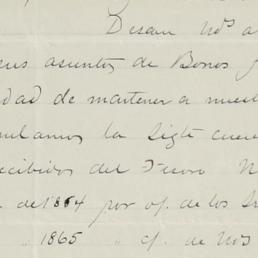 Desean Nos a
sus asuntos de Bonos
dad de mantener a nuest
mulamos la Sigte cuen
ecibidos del Tesoro N
de 1864 por of. de los S
" 1865 " cf. de Nos